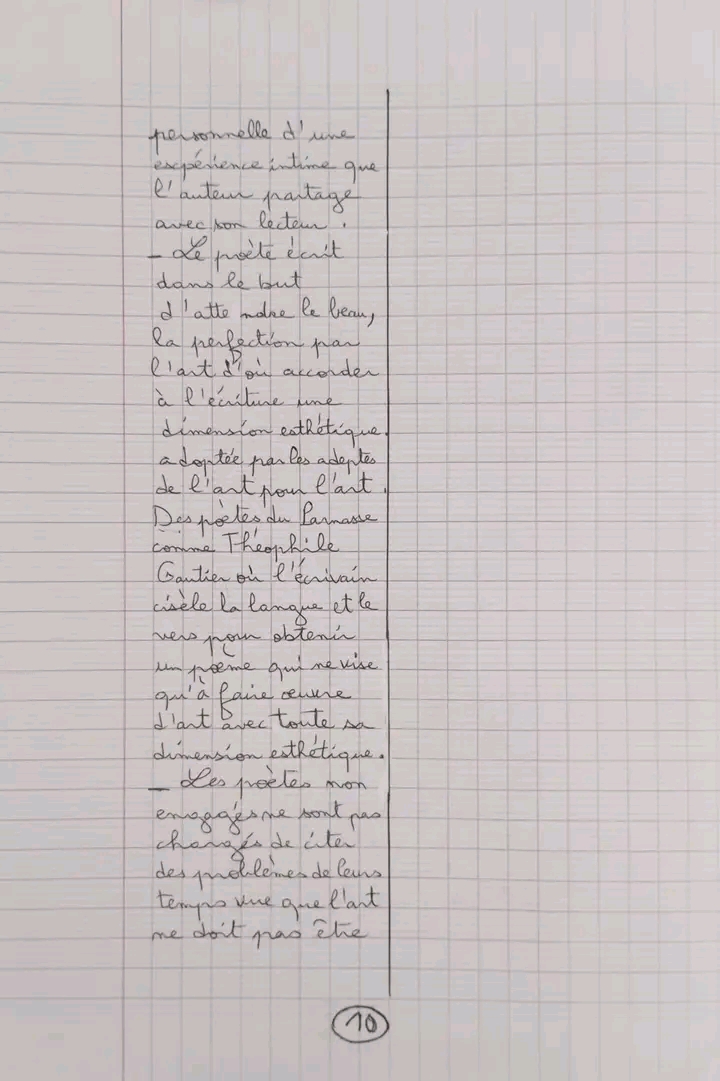 personnelle d'une
expérience intime que
l'auteur partage
avec son lecteur.
- Le poète écrit
dans le but
d'atte ndre le beau,
la perfection par
l'art d'où accorder
à l'écriture une
dimension esthétique.
adoptée par les adeptes
de l'art pour l'art.
Des poètes du Parnasse
comme Théophile
Gautier où l'écrivain
cisèle la langue et le
vers pour obtenir
un poème qui ne vise
qu'à faire œuvre
d'art avec toute sa
dimension esthétique.
- Les poètes non
engagés ne sont pas
chargés de citer
des problèmes de leurs
temps vue que l'art
ne doit pas être
10